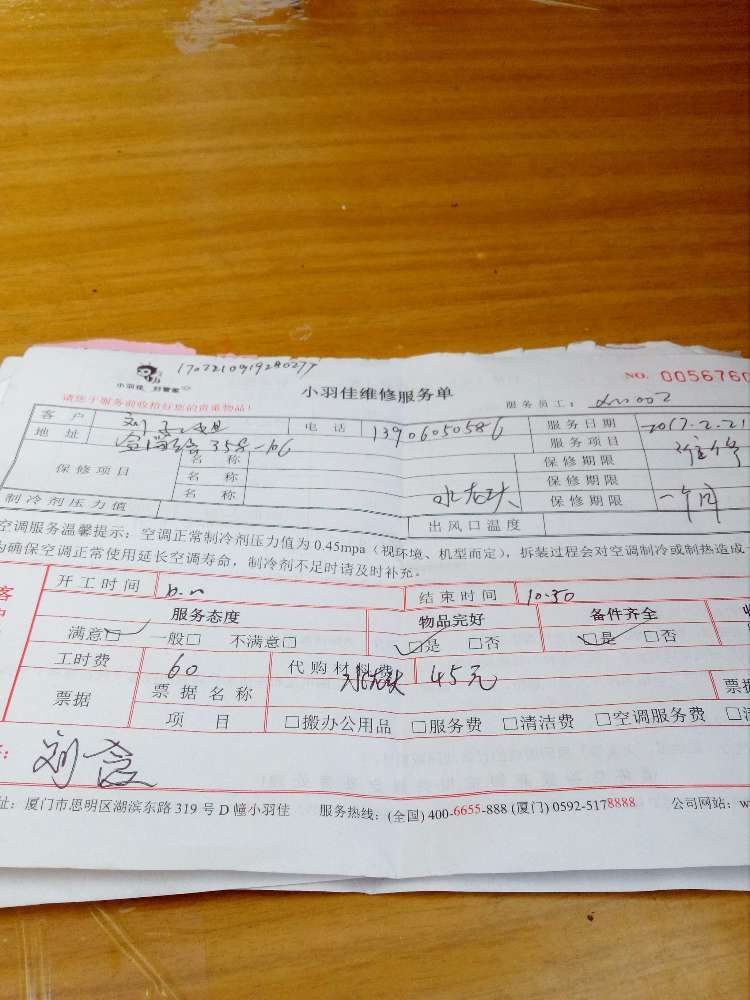 小羽佳 好管家
小羽佳维修服务单
NO. 0056760
请您于服务前收拾好您的贵重物品!
服务员工:
客户 刘 电话 13906050586 服务日期 2017.2.21
地址 358-106 服务项目
保修项目 名称 保修期限
名称 保修期限
名称 水龙头 保修期限 一年
制冷剂压力值 出风口温度
空调服务温馨提示:空调正常制冷剂压力值为 0.45mpa(视环境、机型而定),拆装过程会对空调制冷或制热造成
为确保空调正常使用延长空调寿命,制冷剂不足时请及时补充。
客
开工时间 结束时间 10:30
服务态度 物品完好 备件齐全
满意□ 一般□ 不满意□ □是 □否 □是 □否
工时费 60 代购材料费 水龙头 45元
票据 票据名称 票据
项目 □搬办公用品 □服务费 □清洁费 □空调服务费
刘
址:厦门市思明区湖滨东路 319 号 D 幢小羽佳 服务热线:(全国) 400-6655-888 (厦门) 0592-5178888 公司网站:w